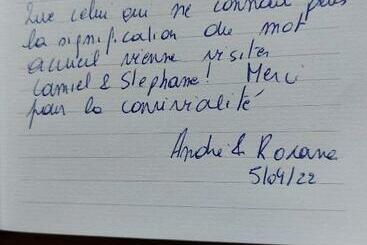 Que celui qui ne connait pas
la signification du mot
accueil vienne visiter
Camiel & Stephane! Merci
pour la convivialité
André & Roxane
5/09/22